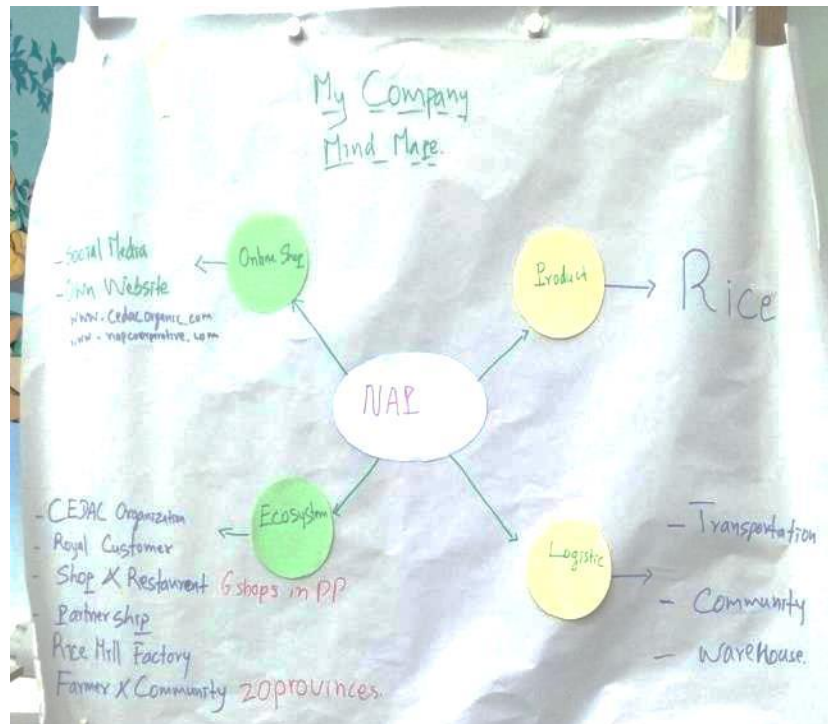 My Company
Mind Mape.
Online Shop
- Social Media
- Own Website
www.Cedacorganic.com
Product
Rice
NAP
Ecosystem
- CEDAC Organization
- Royal Customer
- Shop X Restaurent 6 shops in PP
- Partnership
Rice Mill Factory
Farmer X Community 20 provinces.
Logistic
- Transportation
- Community
- Warehouse.